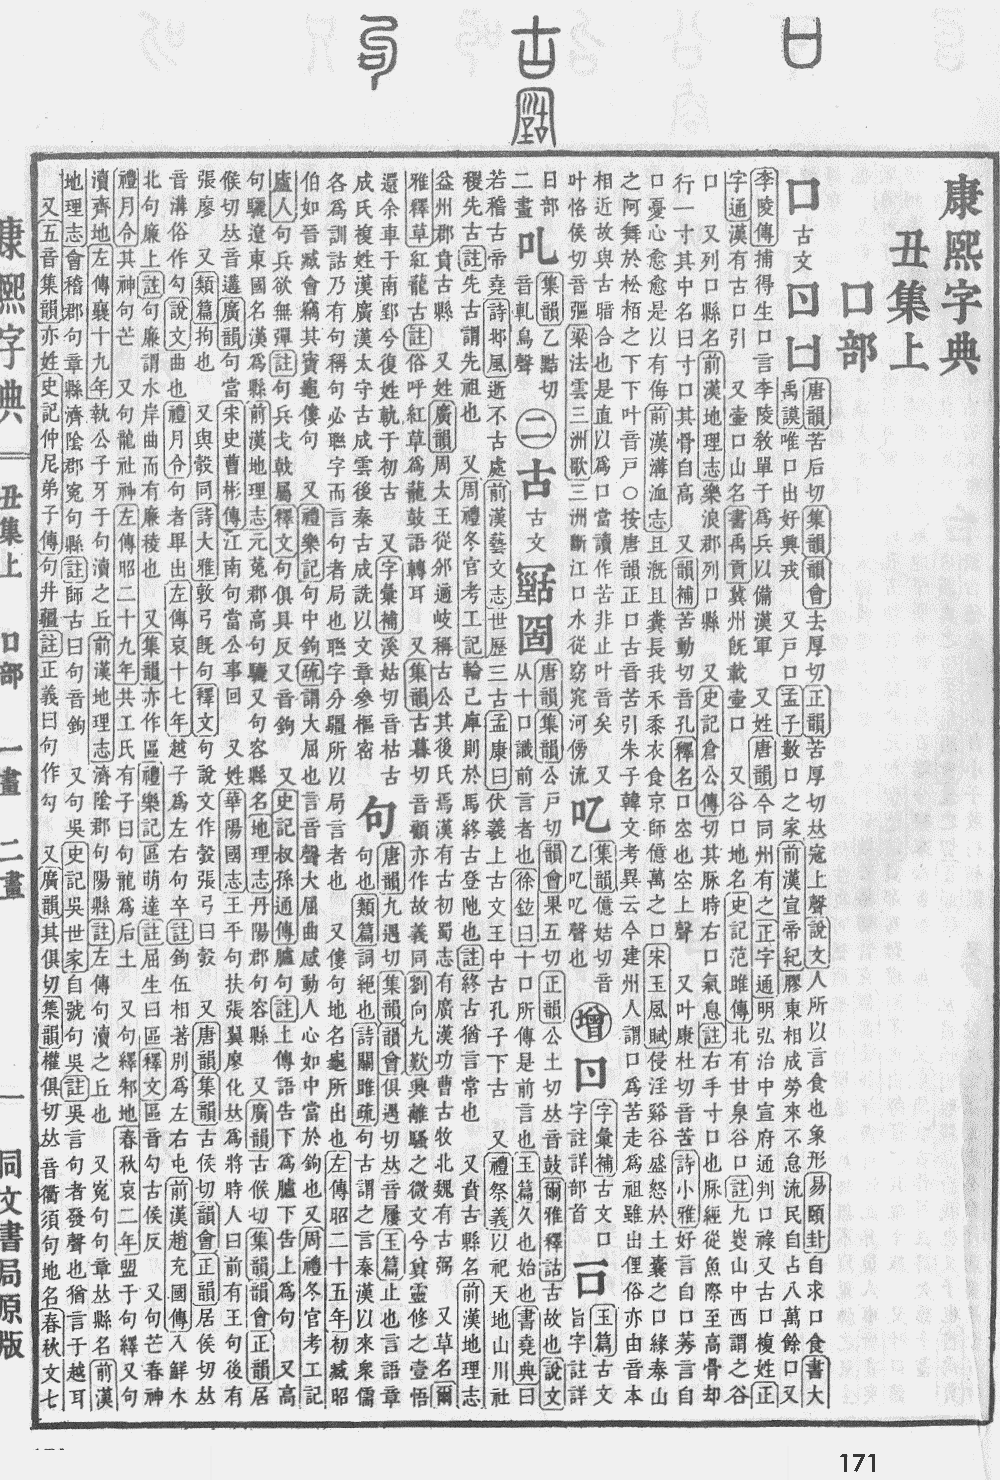 康熙字典
丑集上
口部
口 古文 唐韻苦后切集韻韻會去厚切正韻苦厚切𠀤寇上聲說文人所以言食也象形易頤卦自求口食書大
禹謨唯口出好興戎 又戶口孟子數口之家前漢宣帝紀膠東相成勞來不怠流民自占八萬餘口 又
李陵傳捕得生口言李陵敎單于爲兵以備漢軍 又姓唐韻今同州有之正字通明弘治中宣府通判口祿又古口複姓正
字通漢有古口引 又壷口山名書禹貢冀州旣載壷口 又谷口地名史記范雎傳北有甘泉谷口註九嵏山中西謂之谷
口 又列口縣名前漢地理志樂浪郡列口縣 又史記倉公傳切其脈時右口氣急註右手寸口也脈經從魚際至高骨却
行一寸其中名曰寸口其骨自高 又韻補苦動切音孔釋名口空也空上聲 又叶康杜切音苦詩小雅好言自口莠言自
口憂心愈愈是以有侮前漢溝洫志且漑且糞長我禾黍衣食京師億萬之口宋玉風賦侵淫谿谷盛怒於土囊之口緣泰山
之阿舞於松栢之下下叶音戸○按唐韻正口古音苦引朱子韓文考異云今建州人謂口爲苦走爲祖雖出俚俗亦由音本
相近故與古暗合也是直以爲口當讀作苦非止叶音矣 又
叶恪侯切音彄梁法雲三洲歌三洲斷江口水從窈窕河傍流
𠮙 集韻億姞切音
乙𠮙𠮙聲也
增 字彙補古文口
字註詳部首
𠮛 玉篇古文
旨字註詳
日部
二畫
集韻乙黠切
音軋鳥聲
二 古 古文 唐韻集韻公戸切韻會果五切正韻公土切𠀤音鼓爾雅釋詁古故也說文
从十口識前言者也徐鉉曰十口所傳是前言也玉篇久也始也書堯典曰
若稽古帝堯詩邶風逝不古處前漢藝文志世歷三古孟康曰伏羲上古文王中古孔子下古 又禮祭義以祀天地山川社
稷先古註先古謂先祖也 又周禮冬官考工記輪已庳則於馬終古登阤也註終古猶言常也 又賁古縣名前漢地理志
益州郡賁古縣 又姓廣韻周太王從邠適岐稱古公其後氏焉漢有古初蜀志有廣漢功曹古牧北魏有古弼 又草名爾
雅釋草紅龍古註俗呼紅草爲龍鼓語轉耳 又集韻古暮切音顧亦作故義同劉向九歎興離騷之微文兮冀靈修之壹悟
還余車于南郢兮復往軌于初古 又字彙補溪姑切音枯古
成氏複姓漢廣漢太守古成雲後秦古成詵以文章參樞密
句 唐韻九遇切集韻韻會俱遇切𠀤音屨玉篇止也言語章
句也類篇詞絕也詩關雎疏句古謂之言秦漢以來衆儒
各爲訓詁乃有句稱句必聯字而言句者局也聯字分疆所以局言者也 又僂句地名龜所出也左傳昭二十五年初臧昭
伯如晉臧會竊其寶龜僂句 又禮樂記句中鉤疏謂大屈也言音聲大屈曲感動人心如中當於鉤也又周禮冬官考工記
廬人句兵欲無彈註句兵戈戟屬釋文句俱具反又音鉤 又史記叔孫通傳臚句註上傳語告下爲臚下告上爲句 又高
句驪遼東國名漢爲縣前漢地理志元菟郡高句驪又句容縣名地理志丹陽郡句容縣 又廣韻古候切集韻韻會正韻居
候切𠀤音遘廣韻句當宋史曹彬傳江南句當公事回 又姓華陽國志王平句扶張翼廖化𠀤爲將時人曰前有王句後有
張廖 又類篇拘也 又與彀同詩大雅敦弓旣句釋文句說文作彀張弓曰彀 又唐韻集韻古侯切韻會正韻居侯切𠀤
音溝俗作勾說文曲也禮月令句者畢出左傳哀十七年越子爲左右句卒註鉤伍相著別爲左右屯前漢趙充國傳入鮮水
北句廉上註句廉謂水岸曲而有廉稜也 又集韻亦作區禮樂記區萌達註屈生曰區釋文區音勾古侯反 又句芒春神
禮月令其神句芒 又句龍社神左傳昭二十九年共工氏有子曰句龍爲后土 又句繹邾地春秋哀二年盟于句繹又句
瀆齊地左傳襄十九年執公子牙于句瀆之丘前漢地理志濟陰郡句陽縣註左傳句瀆之丘也 又寃句句章𠀤縣名前漢
地理志會稽郡句章縣濟陰郡寃句縣註師古曰句音鉤 又句吳史記吳世家自號句吳註吳言句者發聲也猶言于越耳
又五音集韻亦姓史記仲尼弟子傳句井疆註正義曰句作勾 又廣韻其俱切集韻權俱切𠀤音衢須句地名春秋文七
康熙字典 丑集上 口部 一畫 二畫 一 同文書局原版
171